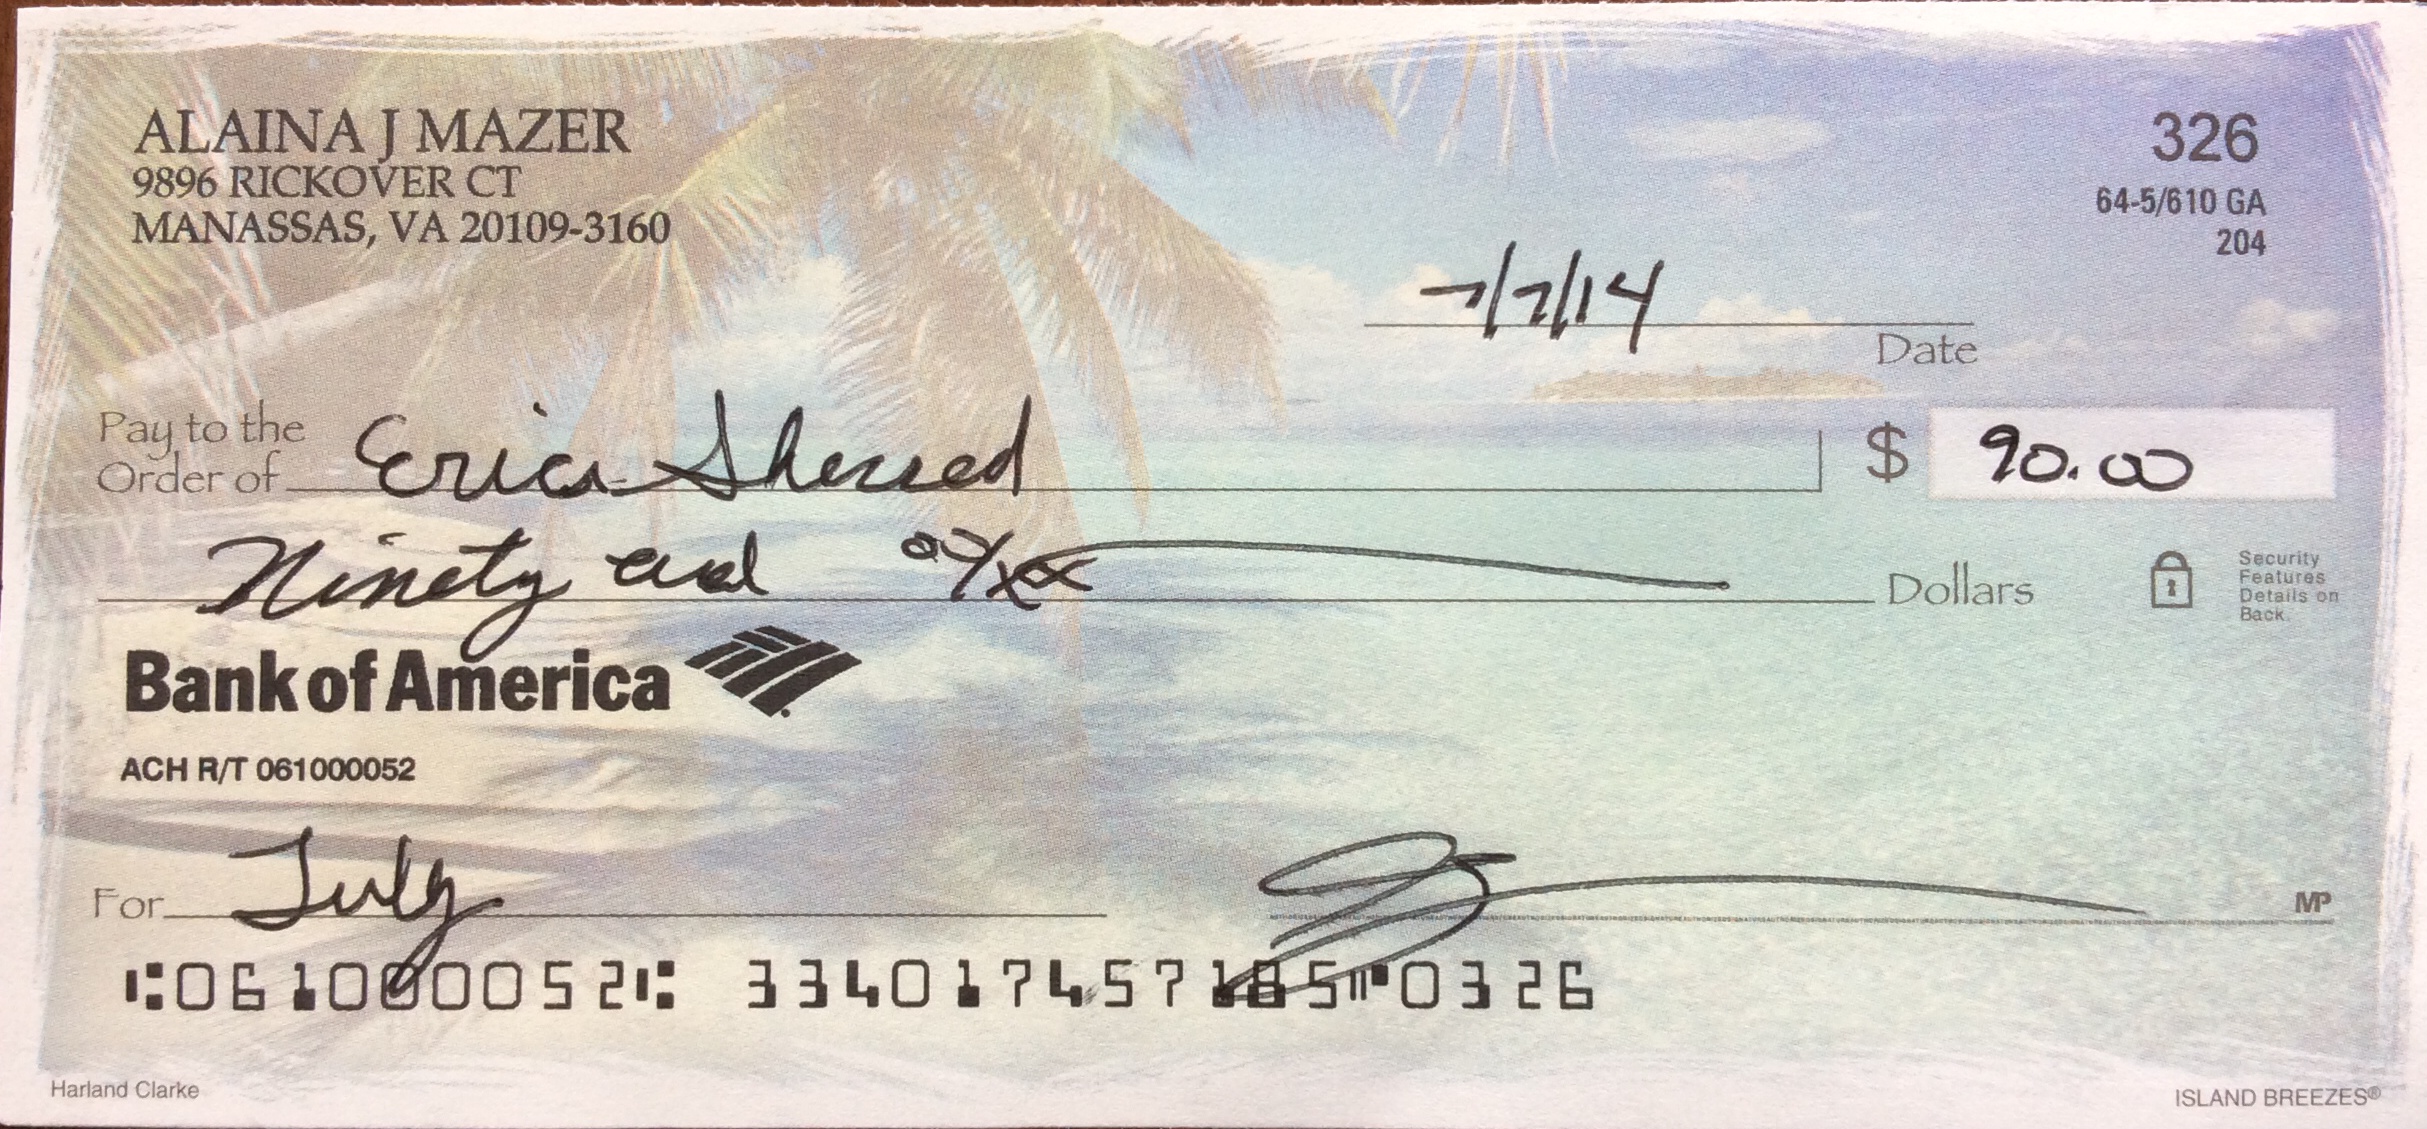 ALAINA J MAZER
9896 RICKOVER CT
MANASSAS, VA 20109-3160
326
64-5/610 GA
204
7/7/14
Date
Pay to the
Order of Erica $ 90.00
Ninety and 00/xx Dollars
Security
Features
Details on
Back.
Bank of America
ACH R/T 061000052
For July
MP
⑆061000052⑆ 334017457185⑈0326
Harland Clarke
ISLAND BREEZES®